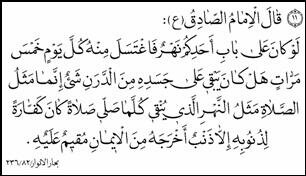 ١١ قَالَ الْاِمَامُ الصَّادِقُ (ع):
لَوْ كَانَ عَلىٰ بَابِ اَحَدِكُمْ نَهْرٌ فَاغْتَسَلَ مِنْهُ كُلَّ يَوْمٍ خَمْسَ
مَرَّاتٍ هَلْ كَانَ يَبْقىٰ عَلىٰ جَسَدِهِ مِنَ الدَّرَنِ شَيْءٌ اِنَّمَا مَثَلُ
الصَّلَاةِ مَثَلُ النَّهْرِ الَّذِي يُنَقِّي كُلَّمَا صَلّىٰ صَلَاةً كَانَ كَفَّارَةً
لِذُنُوبِهِ اِلَّا ذَنْبٌ اَخْرَجَهُ مِنَ الْاِيمَانِ مُقِيمٌ عَلَيْهِ.
بحارالانوار/٨٢/٢٣٦